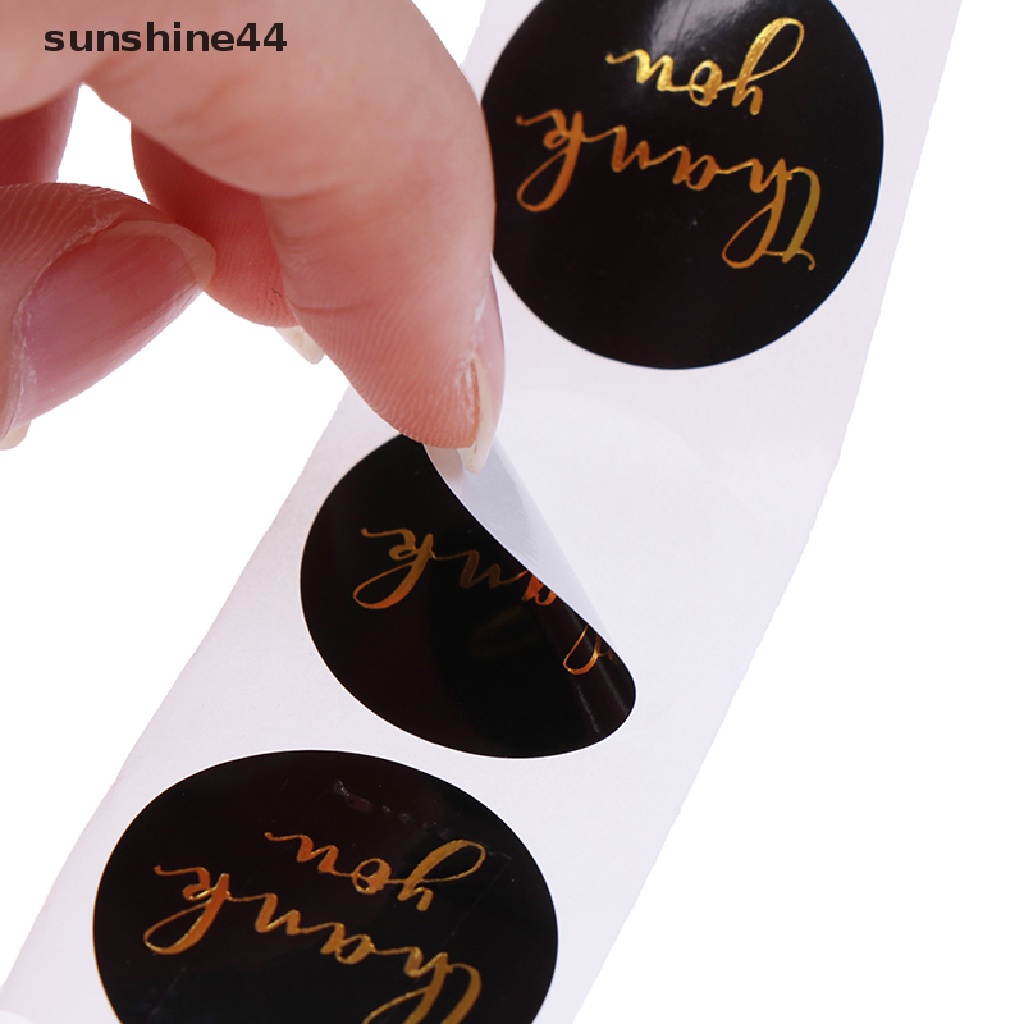 sunshine44
thank
you
ank
thank
you